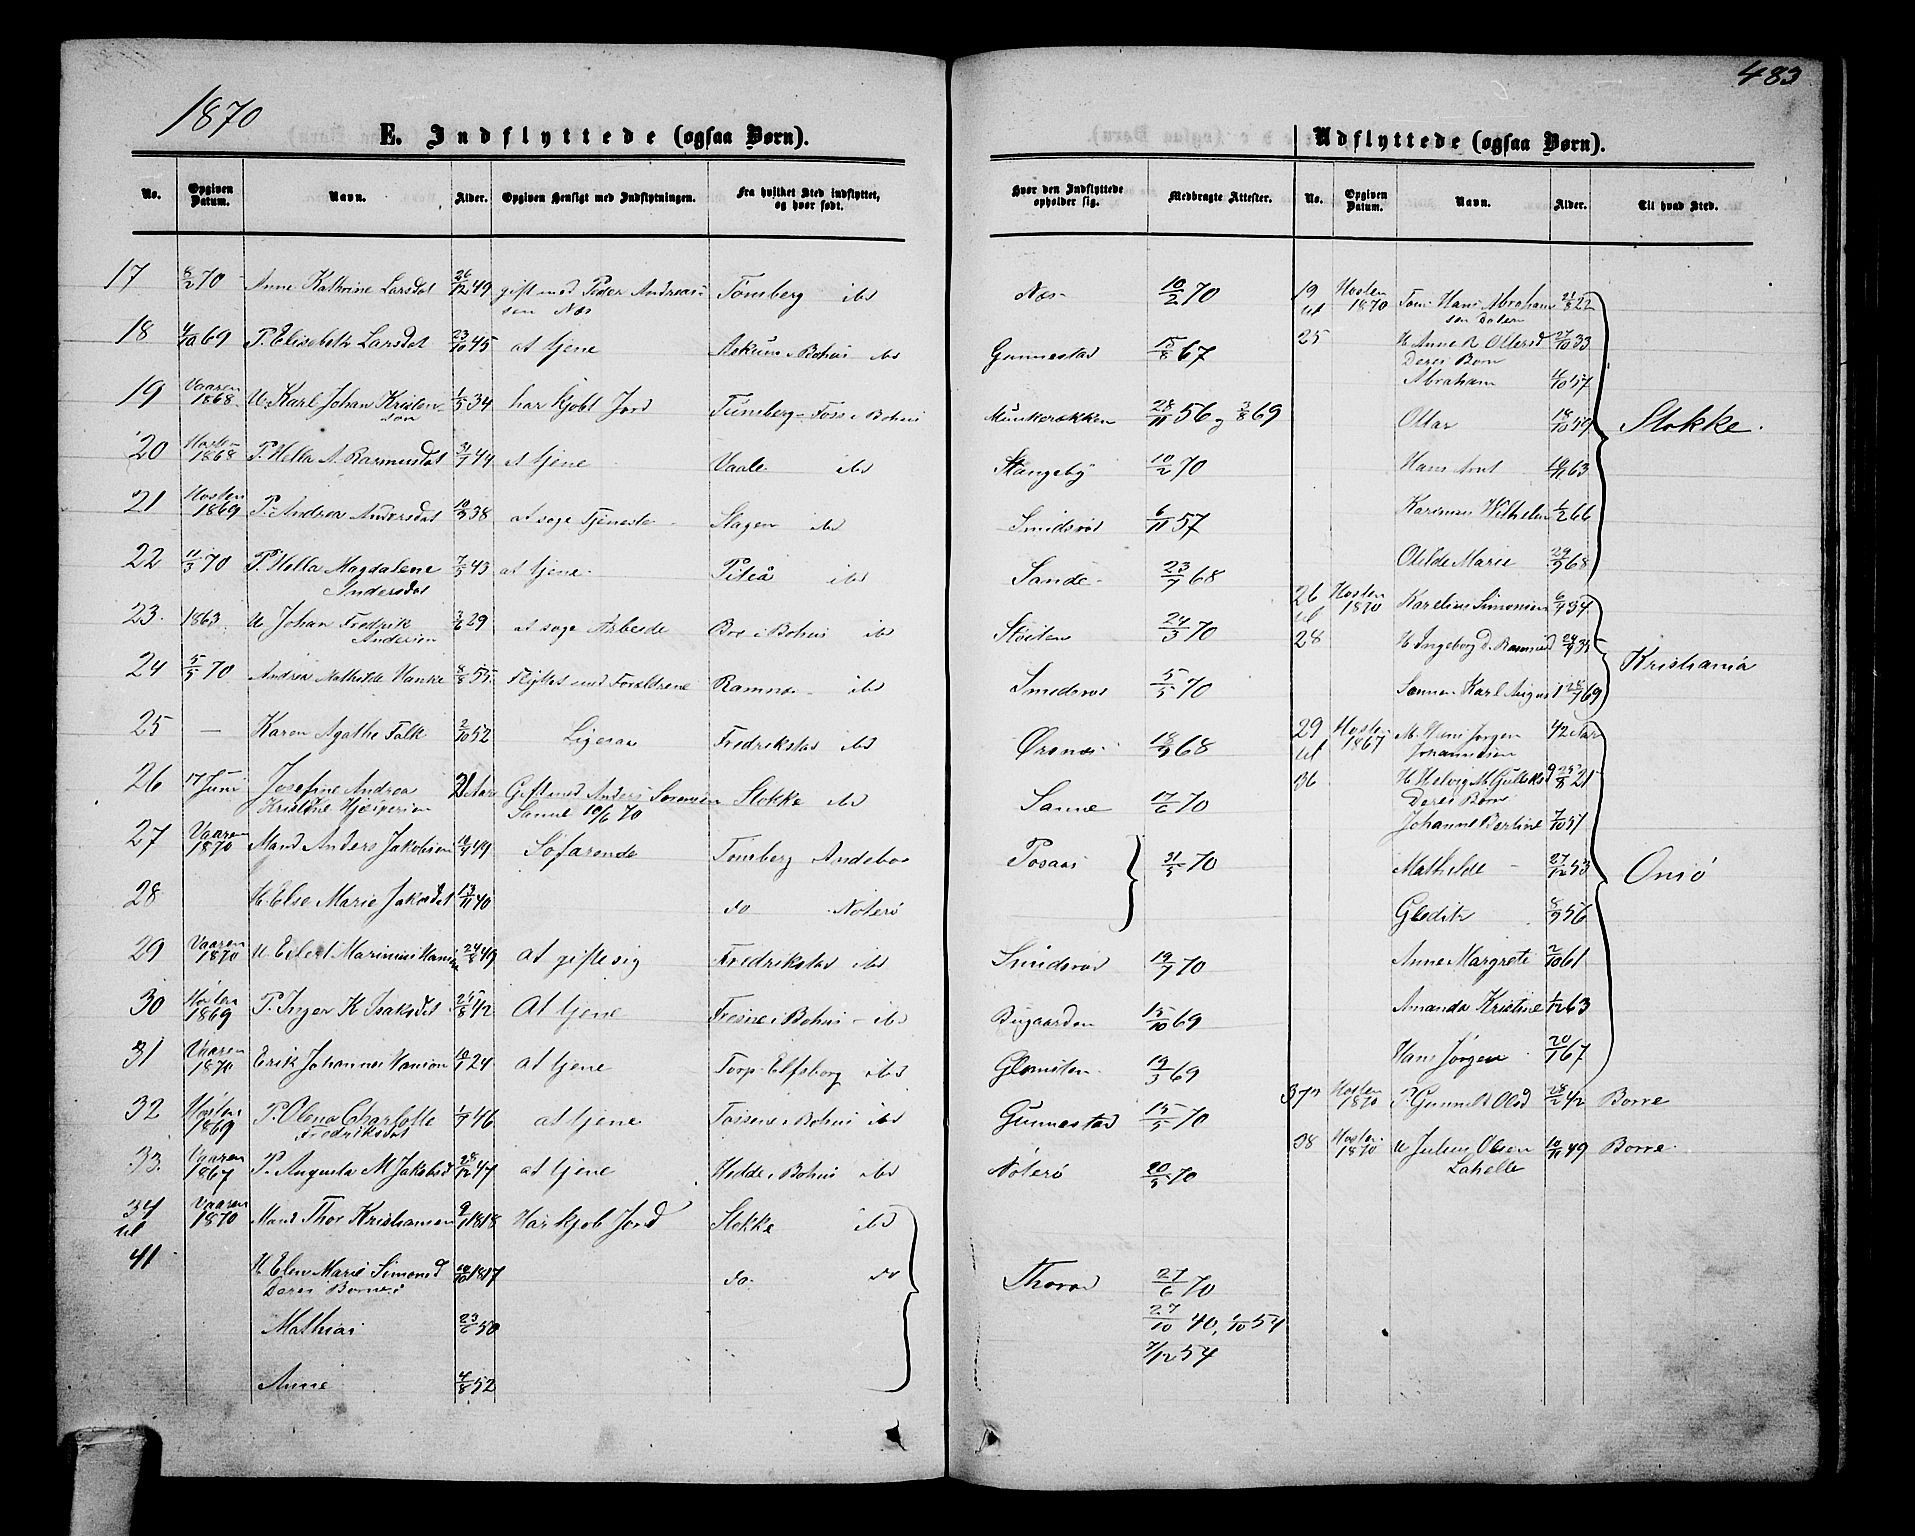 1870
483
E. Indflyttede (ogsaa Børn).
Udflyttede (ogsaa Børn).
No. Opgiven Datum. Navn. Alder. Opgiven Hensigt med Indflytningen. Fra hvilket Sted indflyttet, og hvor født. Hvor den Indflyttede opholder sig. Medbragte Attester.
17 8/2 70 Anne Kathrine Larsdat 26/12 49 gift med Peder Andreas- Tønsberg ibd Næs 10/2 70
sen Næs
18 4/10 69 P. Elisabeth Larsdat 23/10 45 at tjene Askum i Bohus ibd Gunnestad 15/8 67
19 Vaaren 1868 U. Karl Johan Kristen- 1/5 34 har kjøbt Jord Tunsberg - Foss i Bohus Munkerækken 28/11 56 og 3/8 69
son
20 Høsten 1868 P. Hella A. Rasmusdat 3/7 44 at tjene Vaale ibd Stangeby 10/2 70
21 Høsten 1869 P. Andrea Andersdat 10/9 38 at søge Tjeneste Slagen ibd Smidsrød 6/11 57
22 11/3 70 P. Hella Magdalene 7/5 43 at tjene Piteå ibd Sande 23/7 68
Andersdat
23. 1863. U Johan Fredrik 3/6 29 at søge Arbeide Bro i Bohus ibd Støiten 24/3 70
Andersen
24 5/5 70 Andrea Mathilde Hanke 8/8 55 Flyttet med Forældrene Ramnæs ibd Smidsrød 5/5 70
25 — Karen Agathe Falk 2/10 52 Ligesaa Fredrikstad ibd Ørsnæs 18/9 68
26 17 Juni Josefine Andrea 21 Aar Gift med Anders Sørensen Stokke ibd Sanne 17/6 70
Kristine Hjæsperson Sanne 10/6 70
27 Vaaren 1870 Mand Anders Jakobsen 12/4 49 Søfarende Tønsberg Andebo Posaas 31/5 70
28 H. Else Marie Jakobsdat 13/11 40 do Nøterø
29 Vaaren 1870 U Eilert Marinius Hansen 24/2 49 at gifte sig Fredrikstad ibd Smidsrød 19/7 70
30 Høsten 1869 P. Inger K Isaksdat 25/8 42 At tjene Tresne i Bohus - ibd Bugaarden 15/10 69
31 Vaaren 1870 Erik Johannes Hanson 10/1 24 at tjene Torp - Elfsborg ibd Glomsten 19/3 69
32 Høsten 1869 P. Olena Charlotte 1/7 46 at tjene Tossene i Bohus ibd Gunnestad 15/5 70
Fredriksdat
33. Vaaren 1867 P. Augusta M Jakobsd 28/12 47 at tjene Hedde i Bohus ibd Nøterø 20/5 70
34 Vaaren 1870 Mand Thor Kristiansen 9/1 1818 Har kjøb Jord Stokke ibd
til
41 H Elen Marie Simonsd 10/10 1817 do. do Thorød 27/6 70
Deres Børn:
27/10 40, 1/10 54
Mathias 23/6 50
7/12 54
Anne 4/8 52
No. Opgiven Datum. Navn. Alder. Til hvad Sted.
19 Høsten 1870 Tøm. Hans Abraham- 21/8 22
til sen Dalen
25 H Anne R Ottersd 27/10 33
Deres Børn
Abraham 16/10 57
Ottar 18/10 59 Stokke.
Hans Arnt 19/11 63
Karinius Wilhelm 1/2 66
Otilde Marie 29/9 68
26 Høsten 1870 Karelius Simonsen 6/4 34
til
28 H. Ingeborg d. Rasmusd 24/9 35 Kristiania
Sønnen Karl August 28/7 69
29 Høsten 1867 M. Hans Jørgen 42 Aar
til Johannesen
36 H Hedvig M. Gulleksd 25/8 21
Deres Børn
Johanne Bertine 7/10 51
Mathilde 27/12 53 Onsø
Gleditz 8/9 56
Anne Margrete 2/10 61
Amanda Kristine 1/12 63
Hans Jørgen 20/1 67
37 Høsten 1870 P Gunnild Olsd 28/2 42 Borre
38 Høsten 1870 U Julius Olsen 10/11 49 Borre
Lahelle